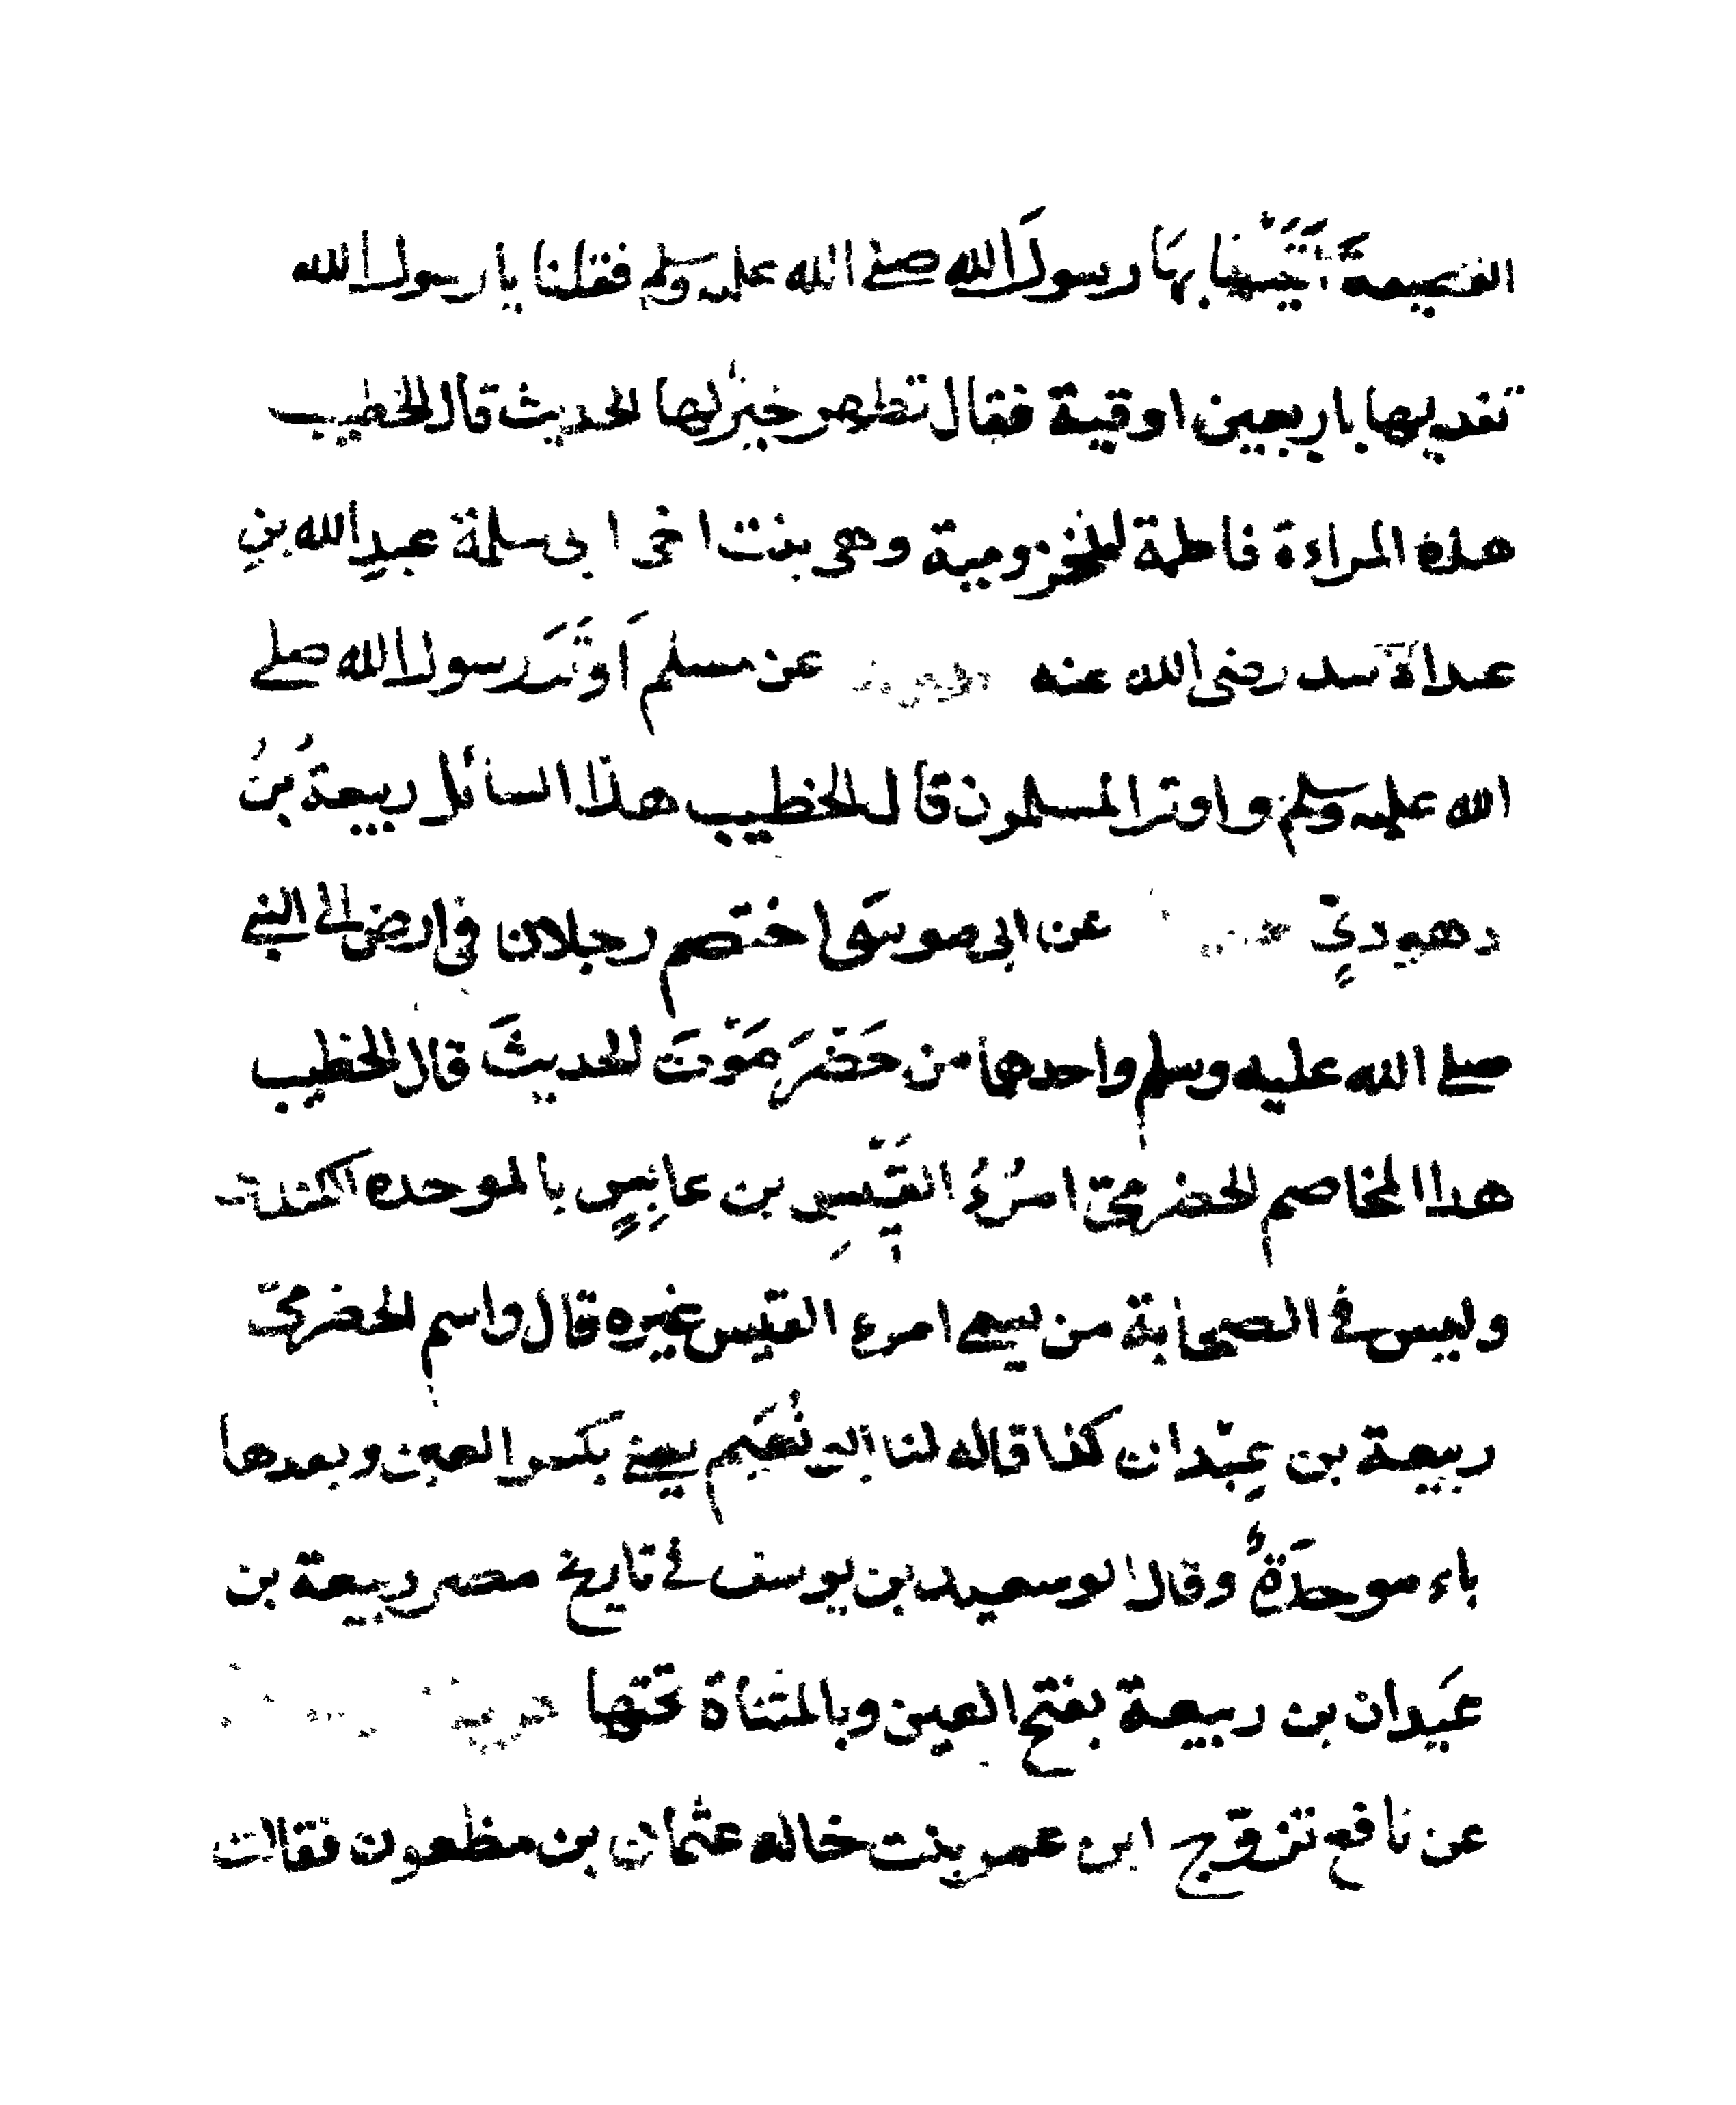 القسيمةَ أَتَيْنا بهَا رسولَ الله صلى الله عليه وسلم فقلنا يا رسول الله
نفديها باربعين اوقية فقال تطهر خيرٌ لها الحديث قال الخطيب
هذه المراءة فاطمة المخزومية وهى بنت اخى ابى سلمة عبدِ الله بنِ
عبد الاسد رضى الله عنه عن مسلم اَوتَرَ رسول الله صلى
الله عليه وسلم واوتر المسلمون قال الخطيب هذا السائل ربيعةُ بنُ
عن ابى موسَى اختصم رجلان فى ارض الى النبى
صلى الله عليه وسلم واحدها من حَضْرَ مَوْتَ الحديثَ قال الخطيب
هدا المخاصم الحضرمىّ امرُءُ القَيْسِ بن عابِسٍ بالموحده
وليس فى الصحابة من يسمى امرء القيس غيره قال واسم الحضرمىّ
ربيعة بن عِبْدان كذا قاله لنا ابو نُعَيم يعنى بكسر العين وبعدها
باء موحدَةٌ وقال ابو سعيد بن يوسف فى تاريخ مصر ربيعة بن
عَيدان بن ربيعة بفتح العين وبالمثناة تحتها
عن نافع تزوّج ابن عمر بنت خاله عثمان بن مظعون فقالت